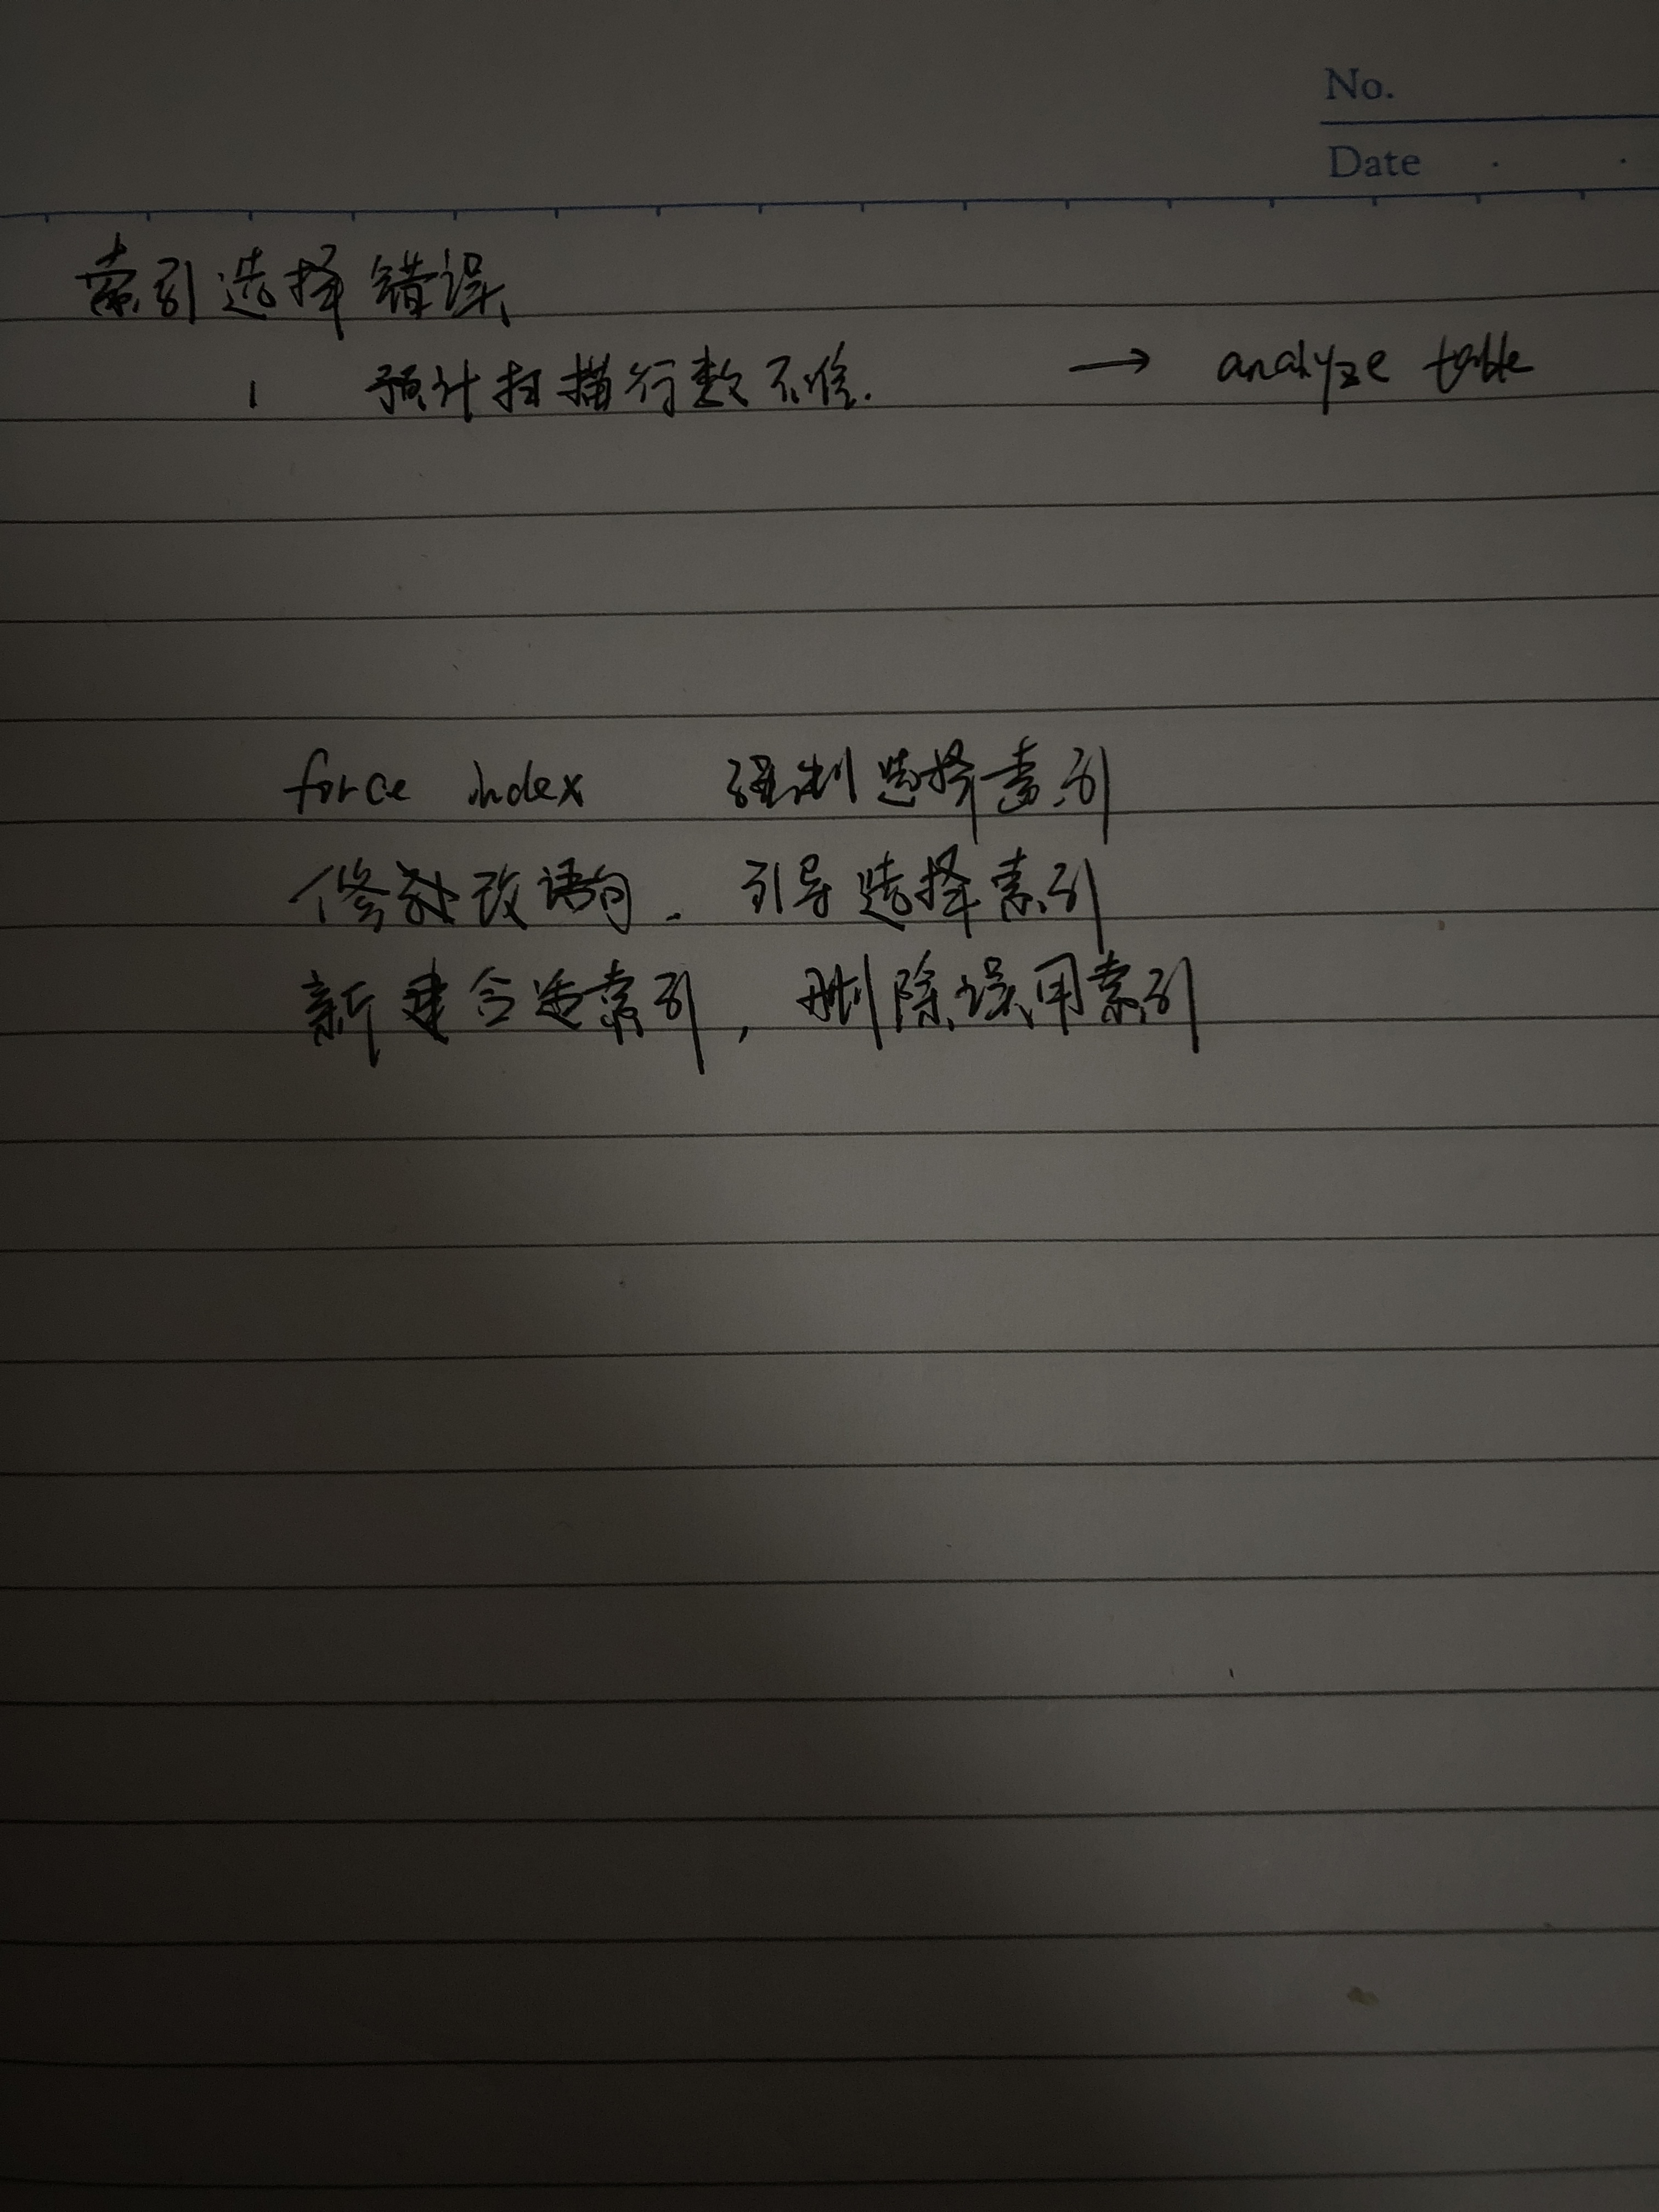 No.
Date
索引选择错误
1 预计扫描行数不准. → analyze table
force index 强制选择索引
修改语句. 引导选择索引
新建合适索引, 删除误用索引